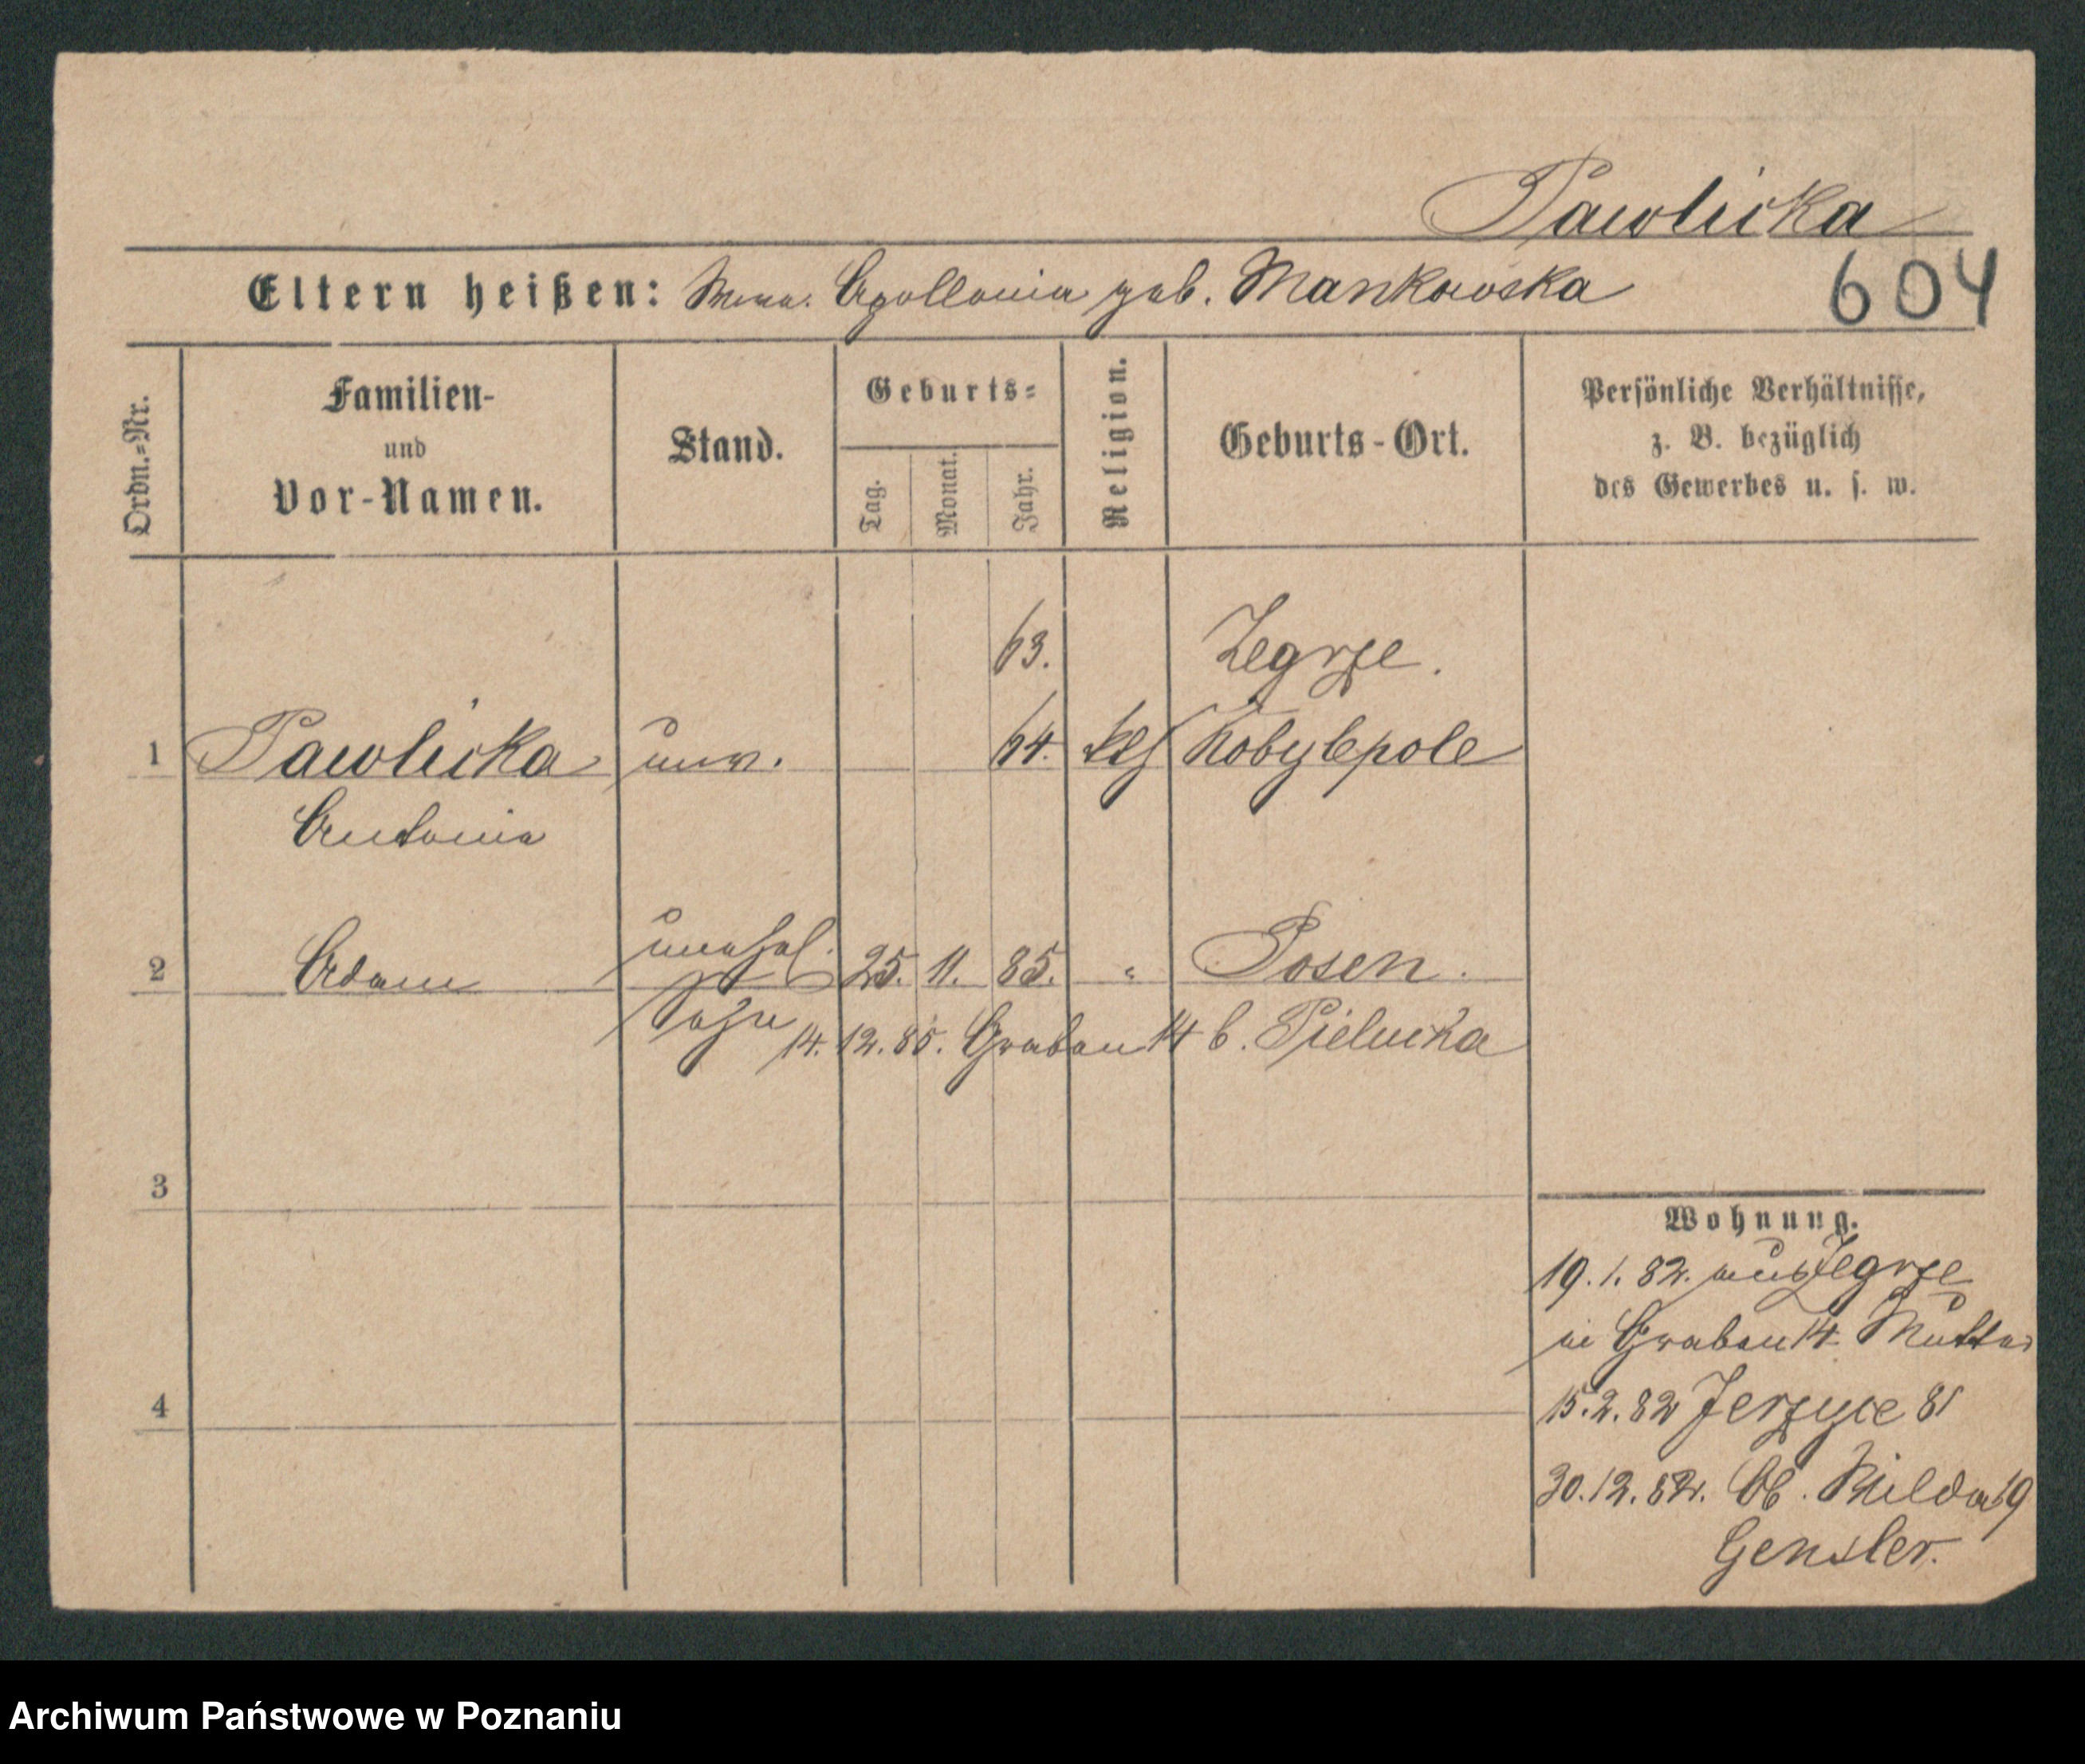 Pawlicka
Eltern heißen: Wwe. Apollonia geb. Mankowska
604
Ordn.=Nr.
Familien-
und
Vor-Namen.
Stand.
Geburts=
Tag.
Monat.
Jahr.
Religion.
Geburts-Ort.
Persönliche Verhältnisse,
z. B. bezüglich
des Gewerbes u. s. w.
63. Zegrze.
1 Pawlicka unv. 64. kth Kobylepole
Antonia
2 Adam unehel. 25. 11. 85. " Posen.
Sohn 14. 12. 85. Graben 14 b. Pielucha
3
Wohnung.
19. 1. 82. aus Zegrze
in Graben 14 Mutter
4
15. 2. 82 Jerzyce 81
30. 12. 82. Ob. Wilda 19
Gensler.
Archiwum Państwowe w Poznaniu